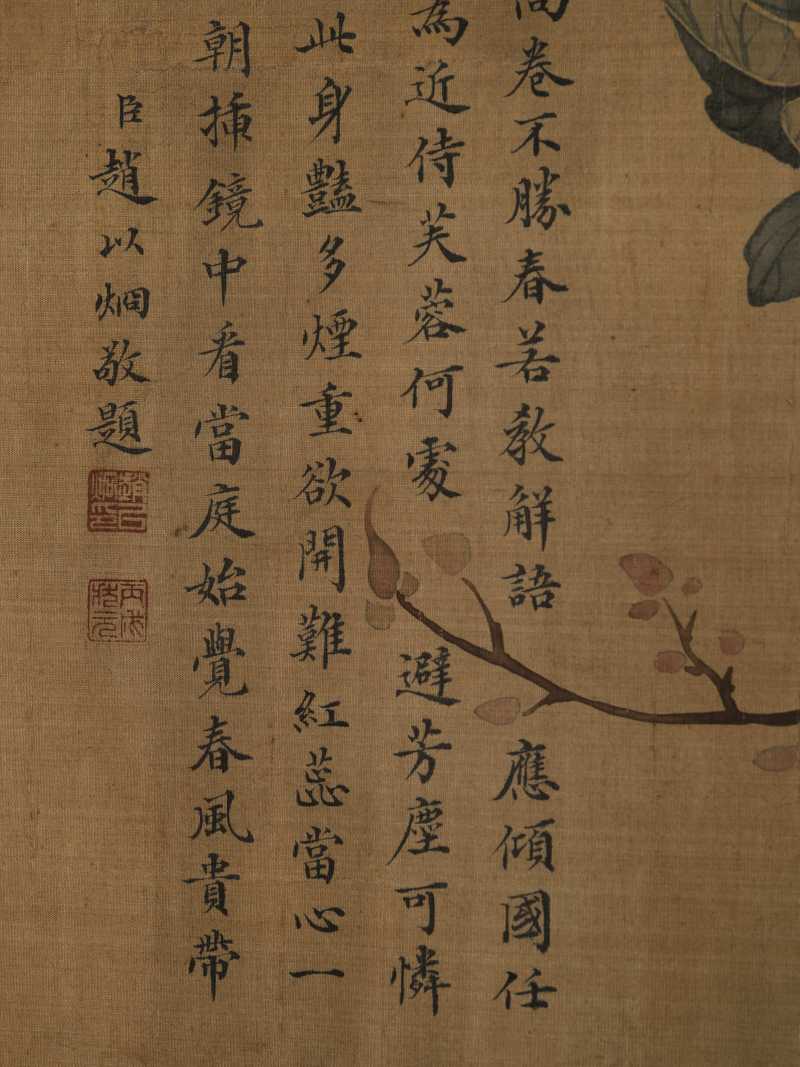 高卷不勝春若教解語 應傾國任
為近侍芙蓉何處 避芳塵可憐
此身豔多煙重欲開難紅蕊當心一
朝插鏡中看當庭始覺春風貴帶
臣趙以烱敬題
趙以烱印
丙戌狀元